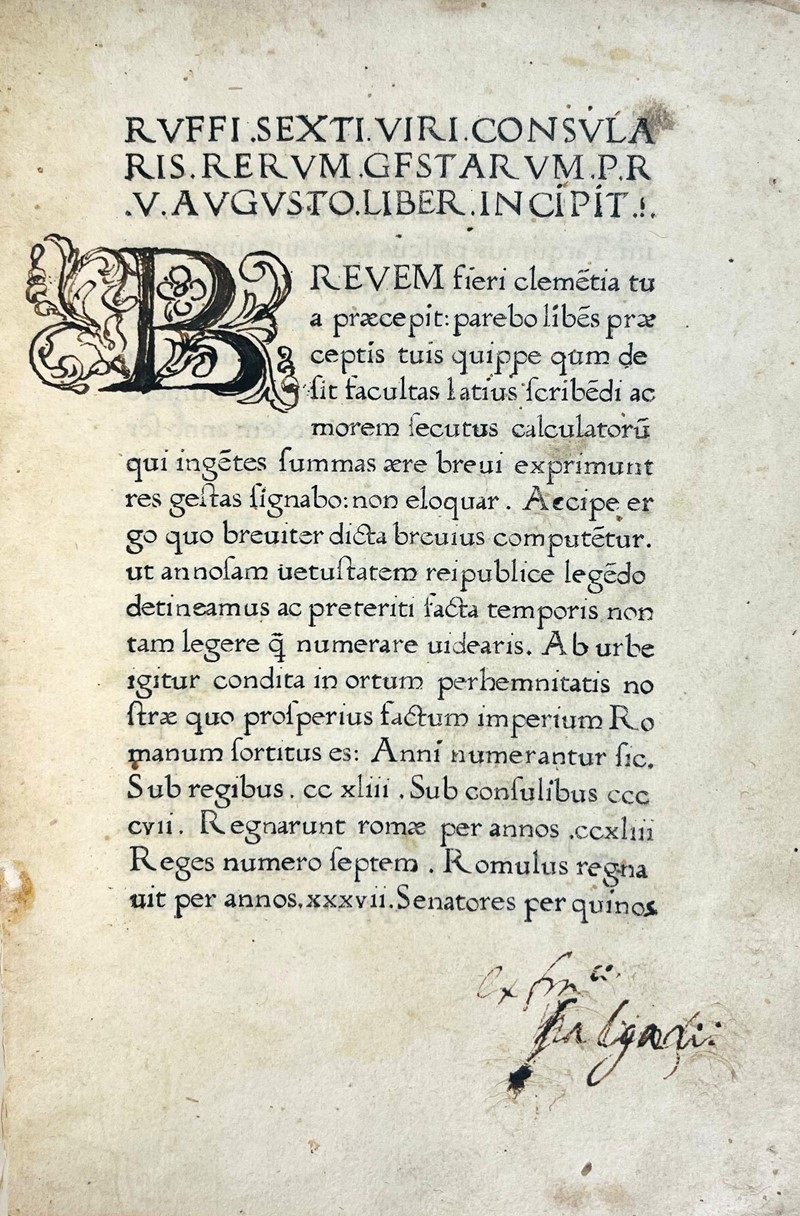 RVFFI .SEXTI. VIRI. CONSVLA
RIS. RERVM .GESTARVM .P.R
.V. AVGVSTO. LIBER. INCIPIT.:.
BREVEM fieri clemētia tu
a præcepit: parebo libēs præ
ceptis tuis quippe qum de
ſit facultas latius ſcribēdi ac
morem ſecutus calculatorū
qui ingētes ſummas ære breui exprimunt
res geſtas ſignabo: non eloquar . Accipe er
go quo breuiter dicta breuius computētur.
ut annoſam uetuſtatem reipublice legēdo
detineamus ac preteriti facta temporis non
tam legere q̄ numerare uidearis. Ab urbe
igitur condita in ortum perhemnitatis no
ſtræ quo proſperius factum imperium Ro
manum ſortitus es: Anni numerantur ſic.
Sub regibus . cc xliii . Sub conſulibus ccc
cvii . Regnarunt romæ per annos .ccxliii
Reges numero ſeptem . Romulus regna
uit per annos.xxxvii. Senatores per quinos
ex